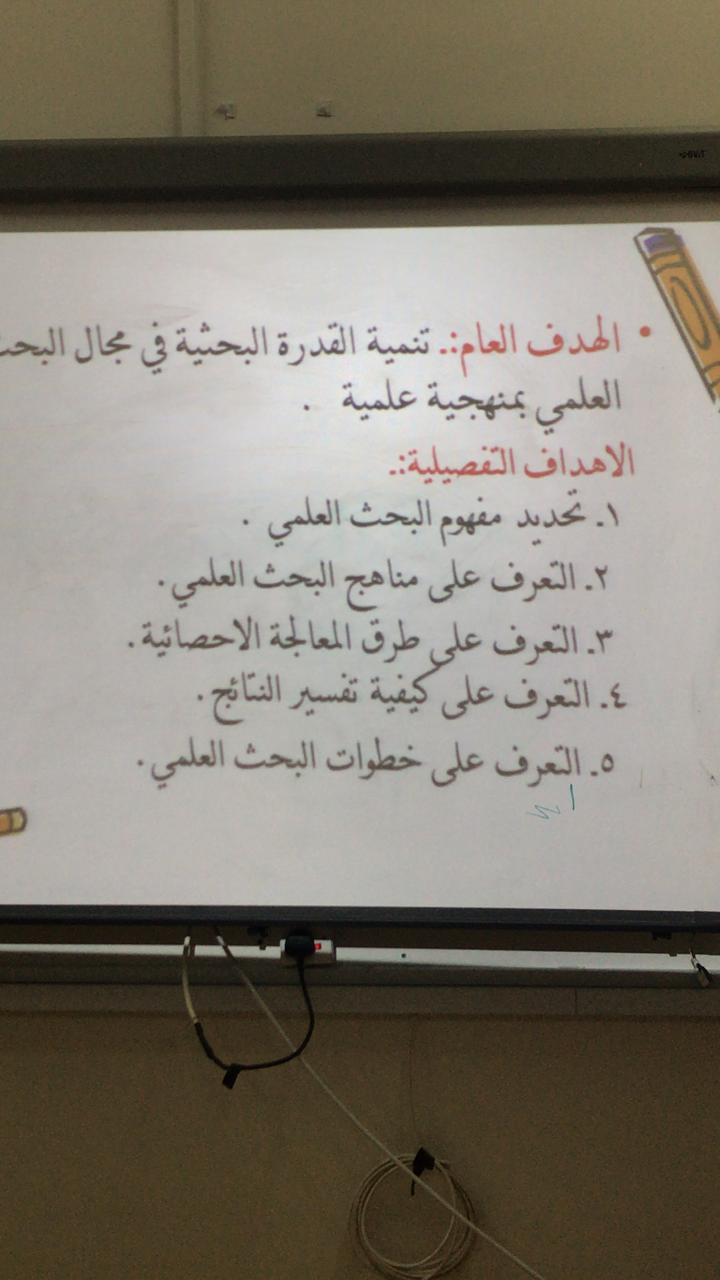 • الهدف العام:. تنمية القدرة البحثية في مجال
العلمي بمنهجية علمية .
الاهداف التفصيلية:.
١. تحديد مفهوم البحث العلمي .
٢. التعرف على مناهج البحث العلمي.
٣. التعرف على طرق المعالجة الاحصائية.
٤. التعرف على كيفية تفسير النتائج.
٥. التعرف على خطوات البحث العلمي.